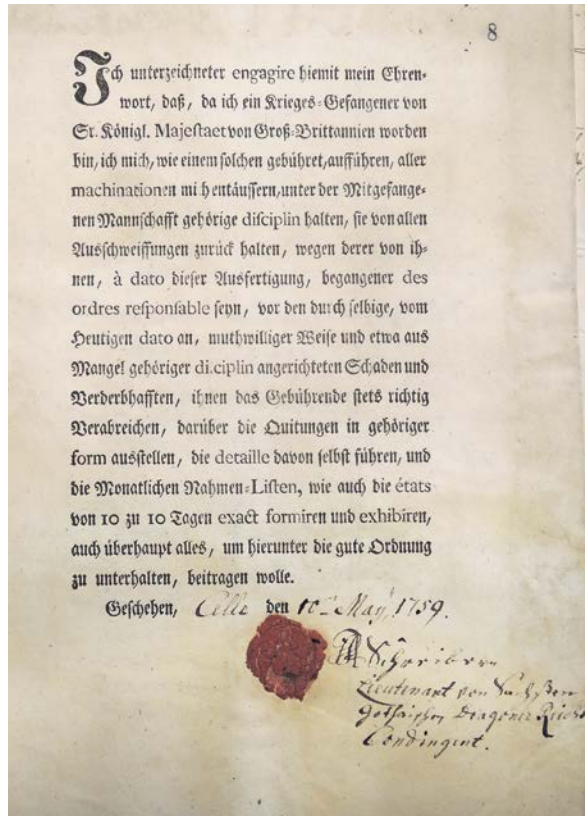 8
Ich unterzeichneter engagire hiemit mein Ehren-
wort, daß, da ich ein Krieges-Gefangener von
Sr. Königl. Majestaet von Groß-Brittannien worden
bin, ich mich, wie einem solchen gebühret, aufführen, aller
machinationen mi h entäussern, unter der Mitgefange-
nen Mannschafft gehörige disciplin halten, sie von allen
Ausschweiffungen zurück halten, wegen derer von ih-
nen, à dato dieser Ausfertigung, begangener des
ordres responsable seyn, vor den durch selbige, vom
Heutigen dato an, muthwilliger Weise und etwa aus
Mangel gehöriger di.ciplin angerichteten Schaden und
Verderbhafften, ihnen das Gebührende stets richtig
Verabreichen, darüber die Quitungen in gehöriger
form ausstellen, die detaille davon selbst führen, und
die Monatlichen Nahmen-Listen, wie auch die états
von 10 zu 10 Tagen exact formiren und exhibiren,
auch überhaupt alles, um hierunter die gute Ordnung
zu unterhalten, beitragen wolle.
Geschehen, Celle den 10ten May, 1759.
Lieutenant von Sachssen
Gothaischen Dragoner
Condingent.